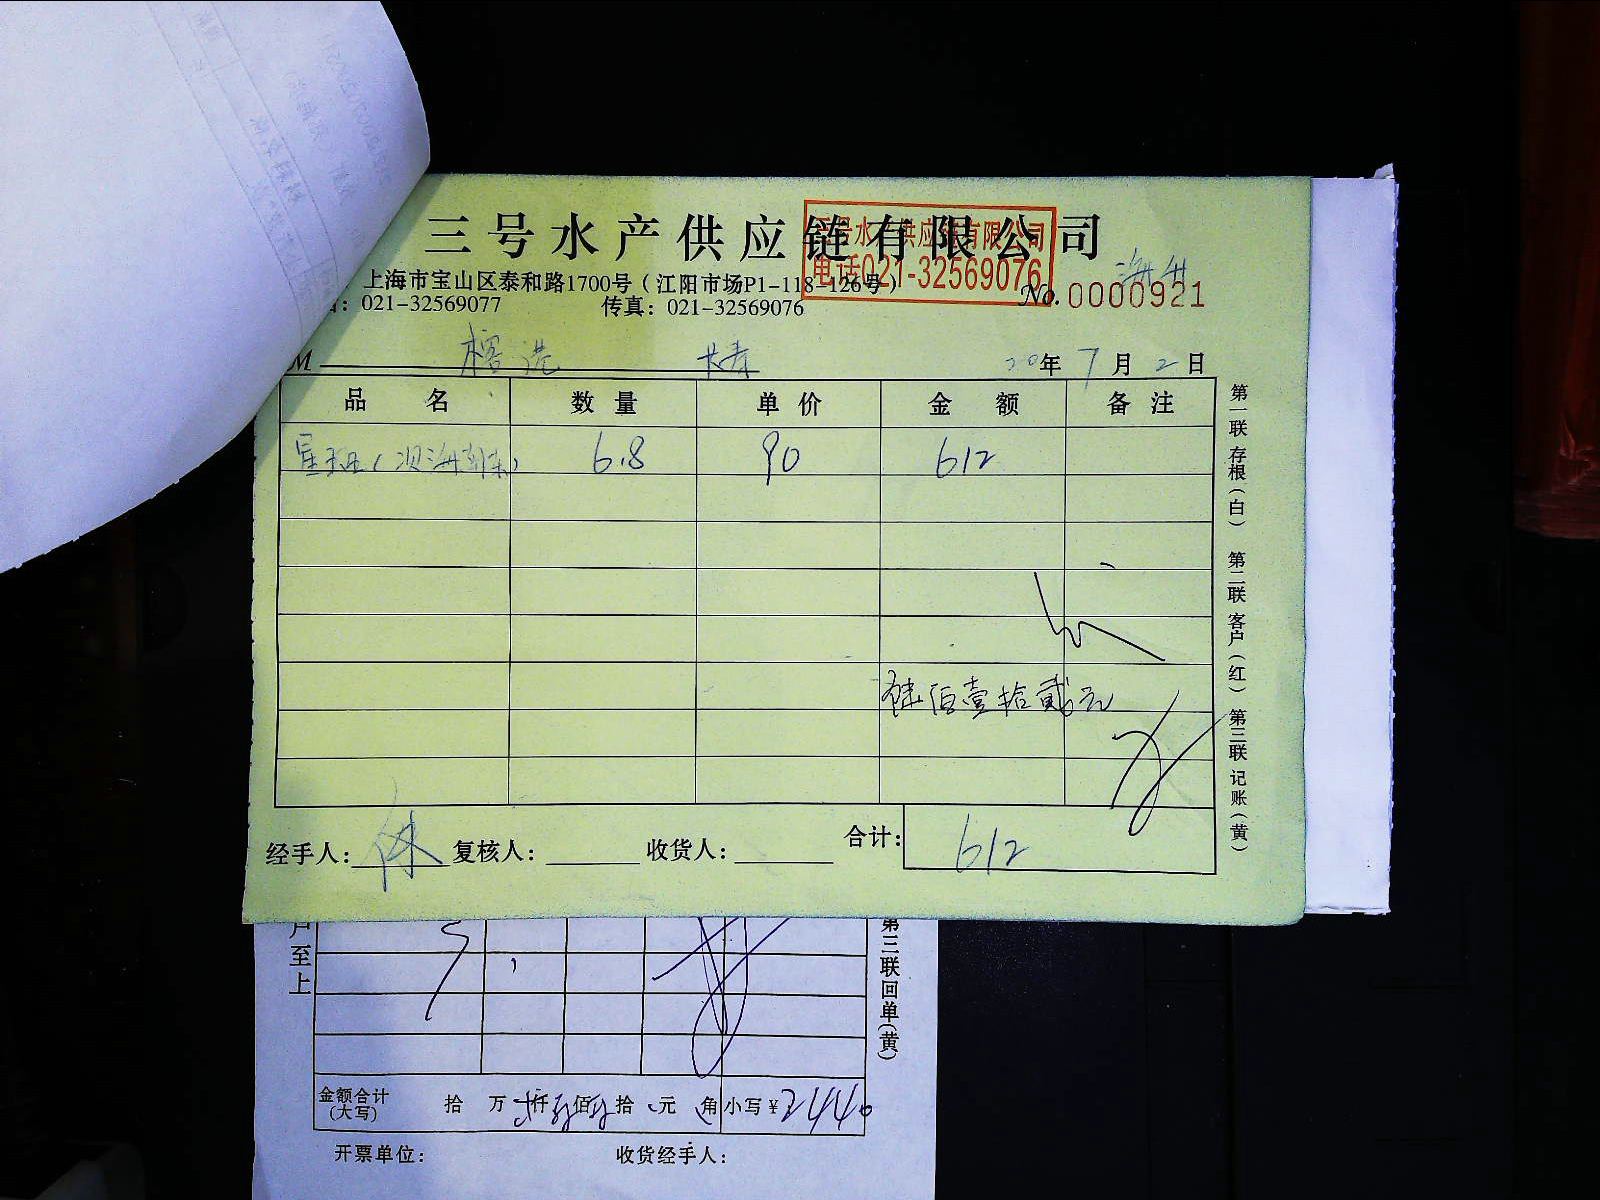 三号水产供应链有限公司
三号水产供应链有限公司
电话021-32569076
上海市宝山区泰和路1700号（江阳市场P1-118-126号）
021-32569077 传真：021-32569076
No. 0000921
M 榕港 20年7月2日
品名 数量 单价 金额 备注
6.8 90 612
陆佰壹拾贰元
经手人： 复核人： 收货人： 合计： 612
第一联 存根（白） 第二联 客户（红） 第三联 记账（黄）
户至上
第三联回单（黄）
金额合计
（大写） 拾 万 仟 佰 拾 元 角 小写￥2440
开票单位： 收货经手人：